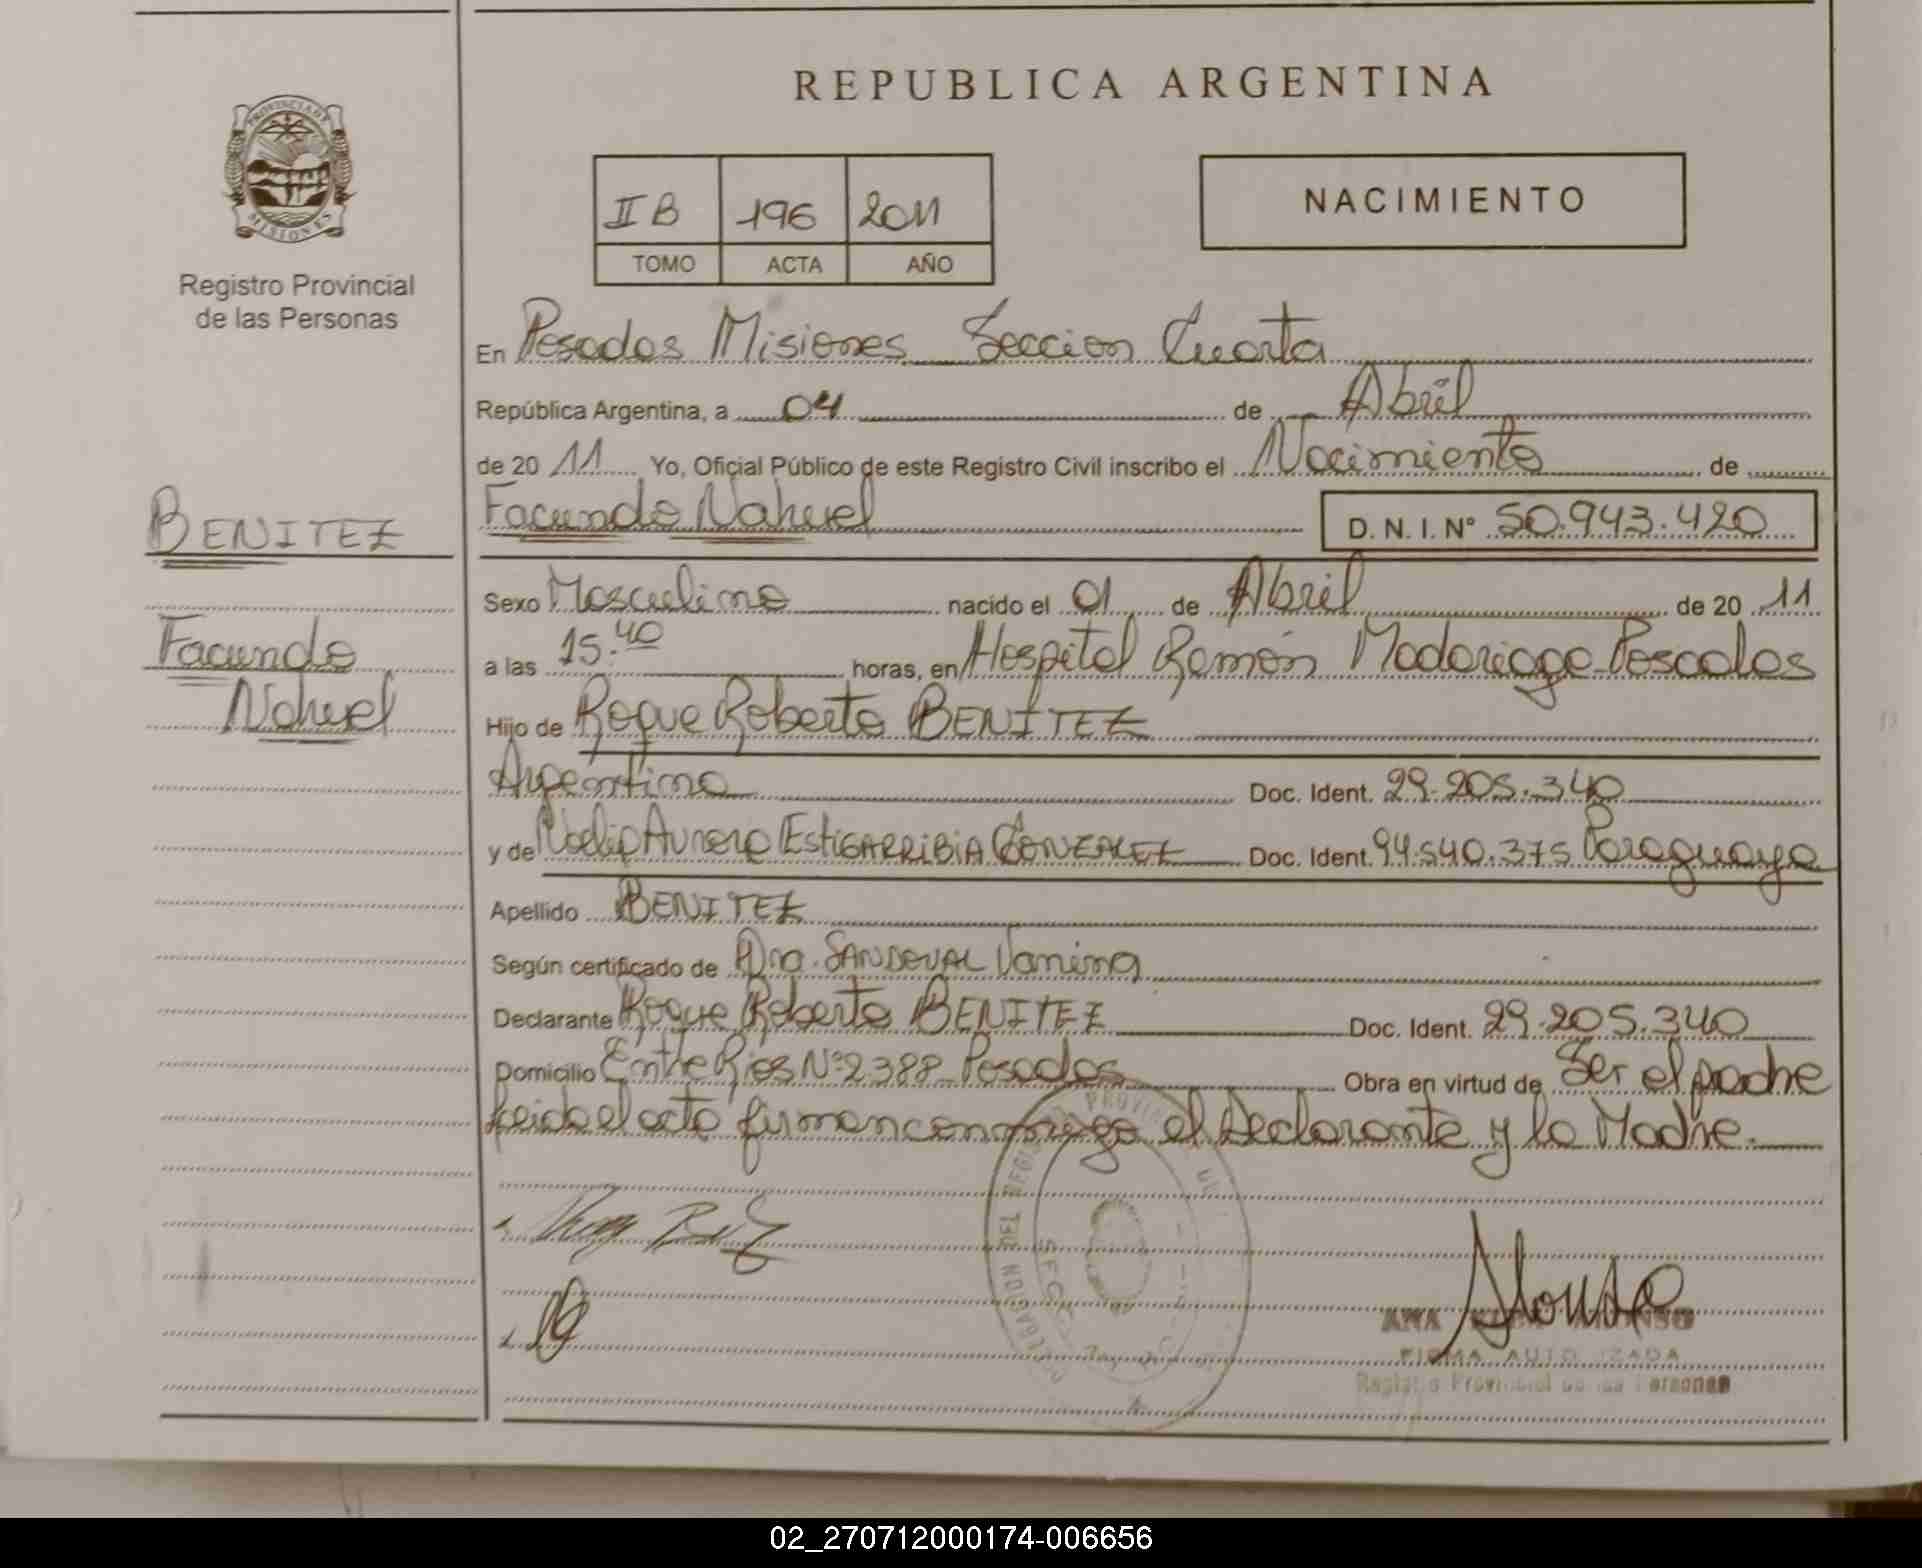 REPUBLICA ARGENTINA
PROVINCIA DE
MISIONES
Registro Provincial
de las Personas
II B 196 2011
TOMO ACTA AÑO
NACIMIENTO
En Posadas Misiones Seccion Cuarta
República Argentina, a 04 de Abril
de 20 11 Yo, Oficial Público de este Registro Civil inscribo el Nacimiento de
Facundo Nahuel D. N. I. Nº 50.943.420
BENITEZ
Facundo
Nahuel
Sexo Masculino nacido el 01 de Abril de 20 11
a las 15:40 horas, en Hospital Ramón Madariaga-Posadas
Hijo de Roque Roberto BENITEZ
Argentino Doc. Ident. 29.205.340
y de Noelia Aurora ESTIGARRIBIA GONZALEZ Doc. Ident. 94.540.375 Paraguaya
Apellido BENITEZ
Según certificado de Dra. SANDOVAL Vanina
Declarante Roque Roberto BENITEZ Doc. Ident. 29.205.340
Domicilio Entre Rios Nº 2388 Posadas Obra en virtud de Ser el padre
Leido el acto firman conmigo el Declarante y la Madre.
DELEGACION DEL REGISTRO PROVINCIAL
Alonso
ANA ALONSO
FIRMA AUTORIZADA
Registro Provincial de las Personas
02_270712000174-006656